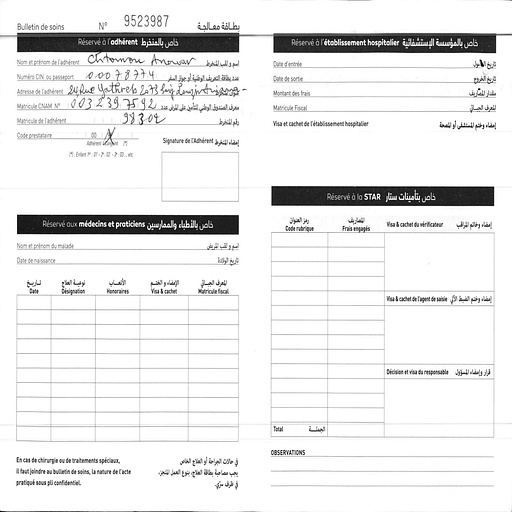 Bulletin de soins N° 9523987 بطاقة معالجة
Réservé à l'adhérent خاص بالمنخرط
Nom et prénom de l'adhérent Anowar اسم و لقب المنخرط
Numéro CIN. ou passeport 00078774 عدد بطاقة التعريف الوطنية أو جواز السفر
Adresse de l'adhérent 24 Rue Yathreb 2073 عنوان المنخرط
Matricule CNAM N° 0032397592 معرف الصندوق الوطني للتأمين على المرض عدد
Matricule de l'adhérent 98302 رقم المنخرط
Code prestataire 00
Adhérent (*)
(*) : Enfant N° : 01 - 2° : 02 - 3° : 03 ... etc
Signature de l'Adhérent إمضاء المنخرط
Réservé aux médecins et praticiens خاص بالأطباء والممارسين
Nom et prénom du malade اسم و لقب المريض
Date de naissance تاريخ الولادة
تاريخ نوعية العلاج الأتعاب الإمضاء و الختم المعرف الجبائي
Date Désignation Honoraires Visa & cachet Matricule fiscal
En cas de chirurgie ou de traitements spéciaux,
il faut joindre au bulletin de soins, la nature de l'acte
pratiqué sous pli confidentiel.
في حالات الجراحة أو العلاج الخاص
يجب مصاحبة بطاقة العلاج، بنوع العمل المنجز،
في ظرف سري.
Réservé à l'établissement hospitalier خاص بالمؤسسة الإستشفائية
Date d'entrée تاريخ الدخول
Date de sortie تاريخ الخروج
Montant des frais مقدار المصاريف
Matricule Fiscal المعرف الجبائي
Visa et cachet de l'établissement hospitalier إمضاء وختم المستشفى أو المصحة
Réservé à la STAR خاص بتأمينات ستار
رمز العنوان المصاريف
Code rubrique Frais engagés
Visa & cachet du vérificateur إمضاء وخاتم المراقب
Visa & cachet de l'agent de saisie إمضاء وختم الضبط الآلي
Décision et visa du responsable قرار وإمضاء المسؤول
Total الجملة
OBSERVATIONS